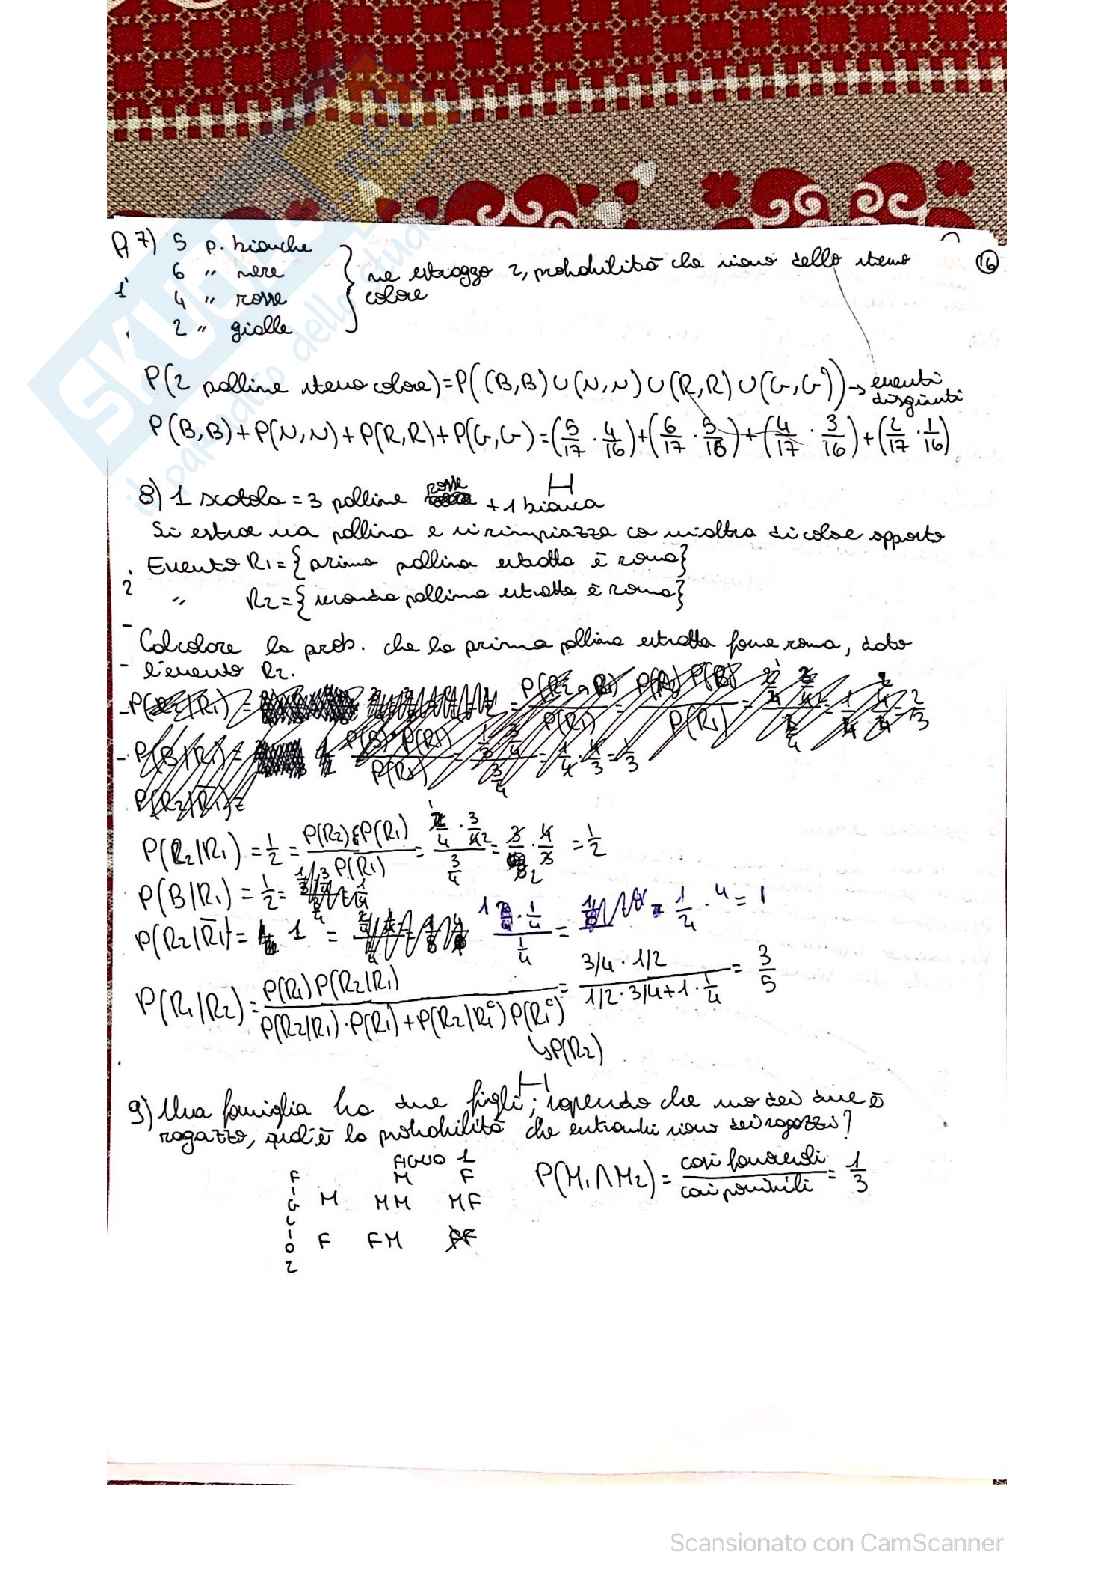 7) 5 p. bianche
6 " nere
4 " rosse
2 " gialle
ne estraggo 2, probabilità che siano dello stesso
colore
6
P(2 palline stesso colore)=P((B,B)∪(N,N)∪(R,R)∪(G,G))→ eventi
disgiunti
P(B,B)+P(N,N)+P(R,R)+P(G,G)=(5/17 · 4/16)+(6/17 · 5/16)+(4/17 · 3/16)+(2/17 · 1/16)
8) 1 scatola = 3 palline rosse + 1 bianca
Si estrae una pallina e si rimpiazza con un'altra di colore opposto
Evento R1={prima pallina estratta è rossa}
" R2={seconda pallina estratta è rossa}
Calcolare la prob. che la prima pallina estratta fosse rossa, dato
l'evento R2.
P(R2|R1) = 1/2 =
P(B|R1) = 1/2 =
P(R2|R̄1) = 1 =
P(R1|R2) = P(R1)P(R2|R1) / P(R2|R1)·P(R1)+P(R2|R1ᶜ)P(R1ᶜ) = 3/4 · 1/2 / 1/2 · 3/4 + 1 · 1/4 = 3/5
↳P(R2)
9) Una famiglia ha due figli; sapendo che uno dei due è
ragazzo, qual è la probabilità che entrambi siano dei ragazzi?
FIGLIO 1
M F
FIGLIO 2
M MM MF
F FM FF
P(M1∩M2) = casi favorevoli / casi possibili = 1/3
SKUOLA.net
Scansionato con CamScanner